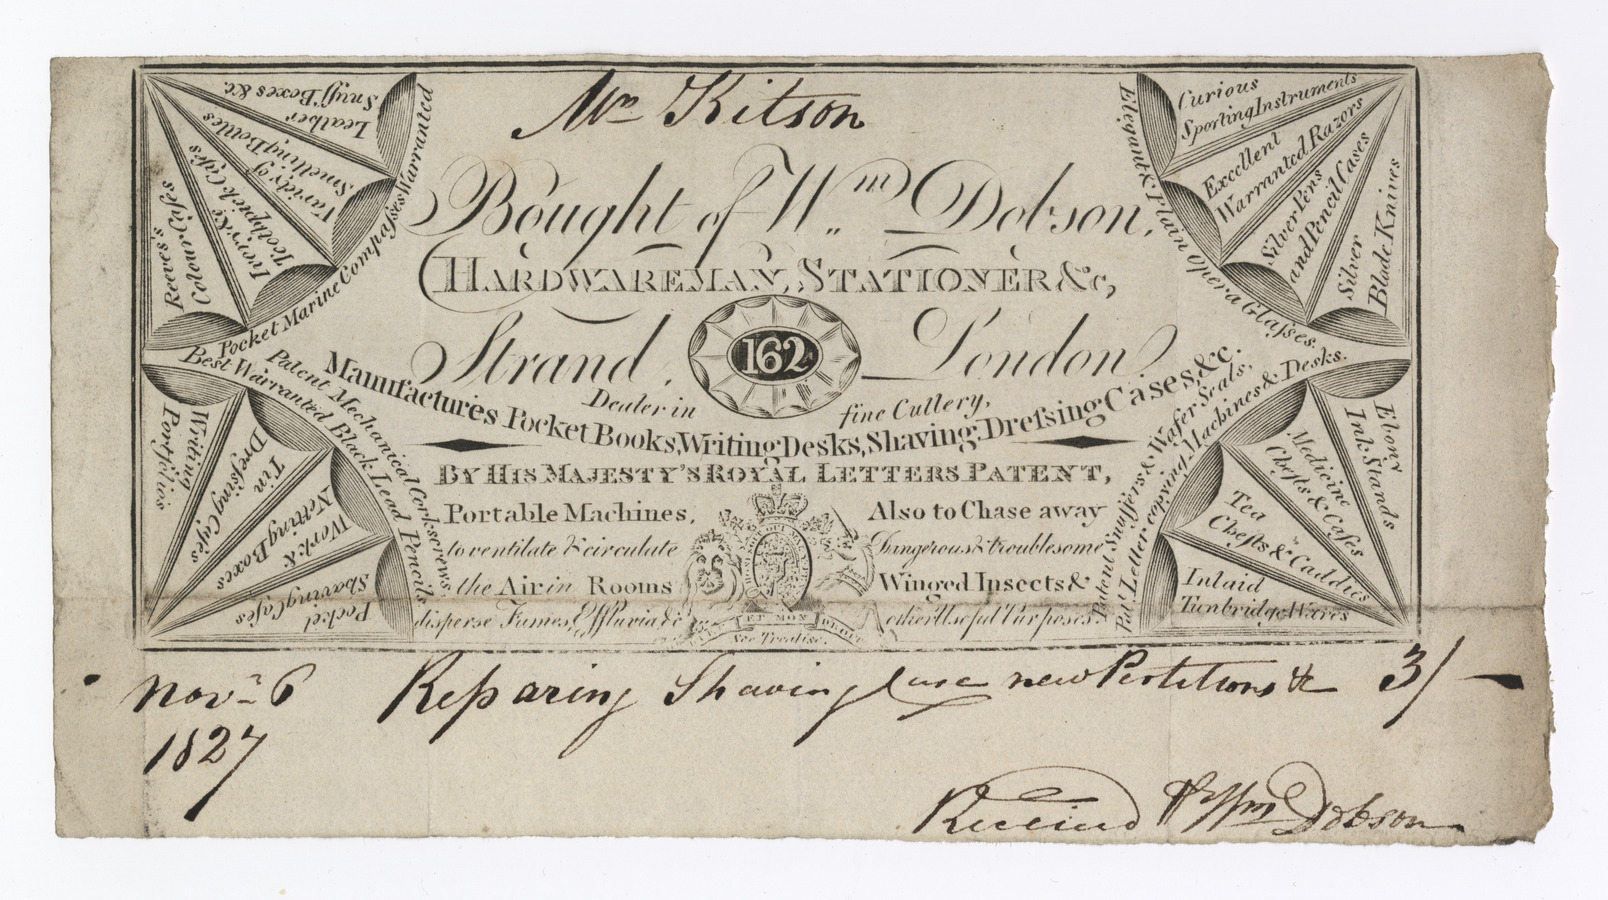 Mr Kitson
Bought of Wm. Dobson,
HARDWAREMAN, STATIONER &c,
Strand, 162 London
Dealer in fine Cutlery,
Manufactures Pocket Books, Writing Desks, Shaving, Dreſsing Cases, &c.
BY HIS MAJESTY'S ROYAL LETTERS PATENT,
Portable Machines,
to ventilate & circulate
the Air in Rooms
disperse Fumes, Effluvia &c
Also to Chase away
Dangerous & troublesome
Winged Insects &
other Useful Purposes.
HONI SOIT QUI MAL Y PENSE
DIEU ET MON DROIT
See Treatise.
Leather
Snuff Boxes &c.
Variety of
Smelling Bottles
Ivory &c
Toothpick Caſes
Reeves's
Colour Caſes
Pocket Marine Compaſses Warranted
Curious
Sporting Instruments
Excellent
Warranted Razors
Silver Pens
and Pencil Cases
Silver
Blade Knives
Elegant & Plain Opera Glaſses.
Best Warranted Black Lead Pencils
Patent Mechanical Corkscrews
Writing
Portfolios
Tin
Dreſsing Caſes
Work &
Netting Boxes
Pocket
Shaving Caſes
Patent Snuffers & Wafer Seals,
Pat. Letter copying Machines & Desks.
Ebony
Ink Stands
Medicine
Cheſts & Caſes
Tea
Cheſts & Caddies
Inlaid
Tunbridge Wares
Novr 6 Reparing Shaving Case new Pertitions &c 3/-
1827
Received Wm Dobson